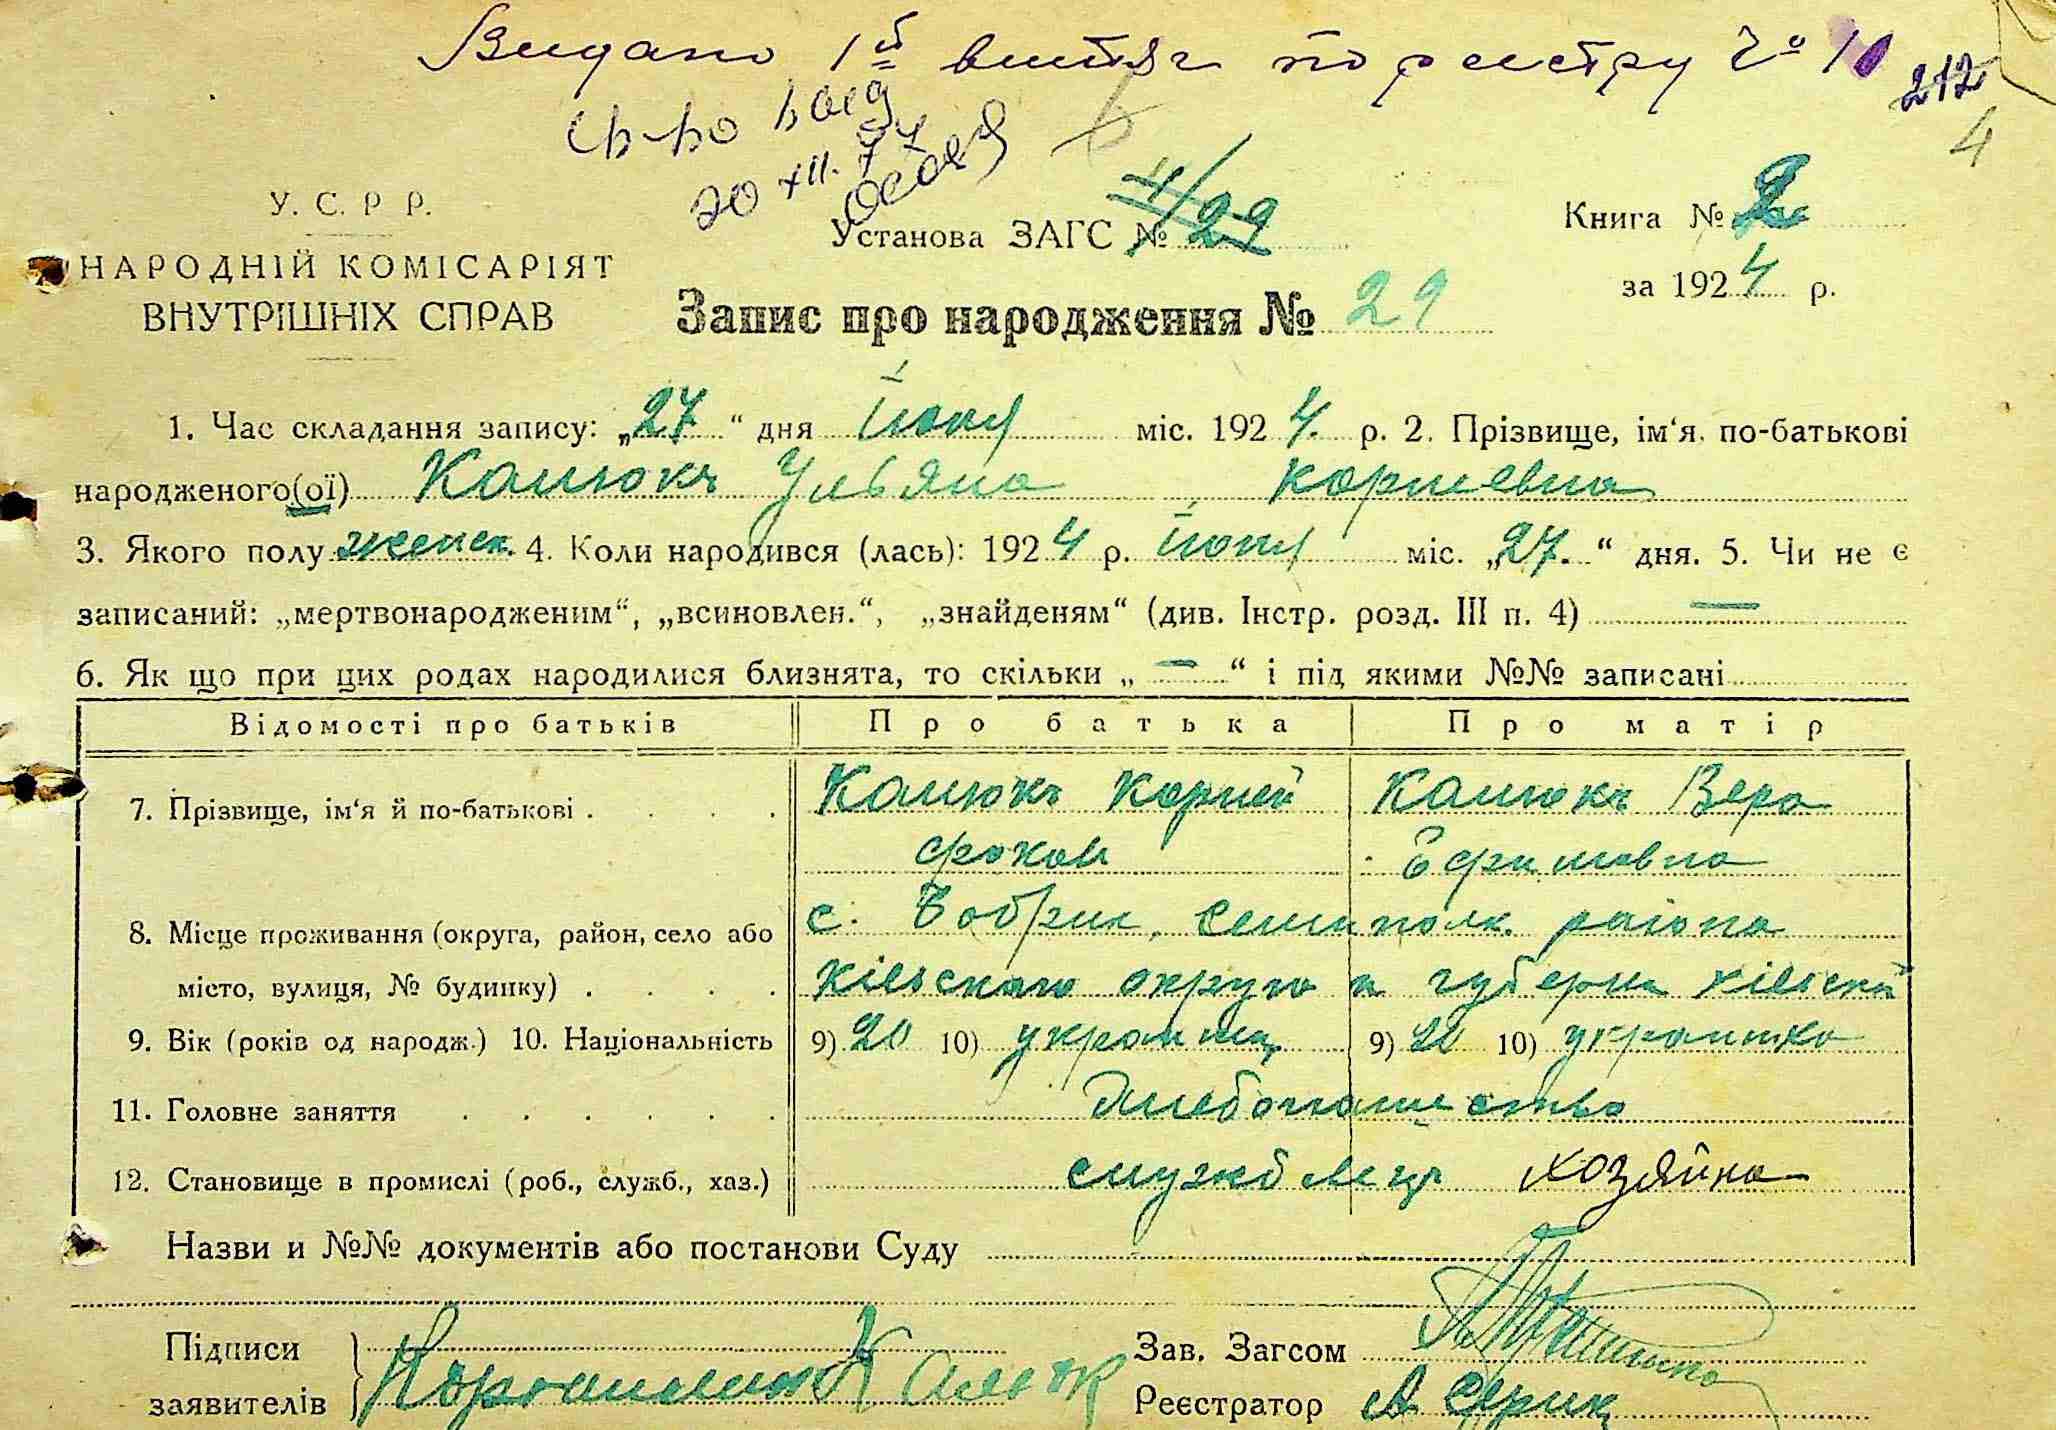 Видано 1й витяг по реестру № 10
212
4
20 XII.
У. С. Р Р.
НАРОДНІЙ КОМІСАРІЯТ
ВНУТРІШНІХ СПРАВ
Установа ЗАГС № 29
Книга № 2
за 1924 р.
Запис про народження № 29
1. Час складання запису: „27“ дня йюня міс. 1924. р. 2. Прізвище, ім‘я, по-батькові
народженого(ої) Калюжъ Ульяна Корнеевна
3. Якого полу женск. 4. Коли народився (лась): 1924 р. йюня міс. „27.“ дня. 5. Чи не є
записаний: „мертвонародженим“, „всиновлен.“, „знайденям“ (див. Інстр. розд. III п. 4) —
6. Як що при цих родах народилися близнята, то скільки „—“ і під якими №№ записані
Відомості про батьків Про батька Про матір
7. Прізвище, ім‘я й по-батькові . . . . Калюжъ Корней Калюжъ Вера
Фоков Ефимовна
8. Місце проживання (округа, район, село або с. Бобрик, Семиполк. района
місто, вулиця, № будинку) . . . . Кіевскаго округа и губерни Кіевской
9. Вік (років од народж.) 10. Національність 9) 20 10) украинец 9) 20 10) украинка
11. Головне заняття . . . . . . Хлебопашество
12. Становище в промислі (роб., служб., хаз.) хозяйка
Назви и №№ документів або постанови Суду
Підписи
заявителів
Зав. Загсом
Реєстратор